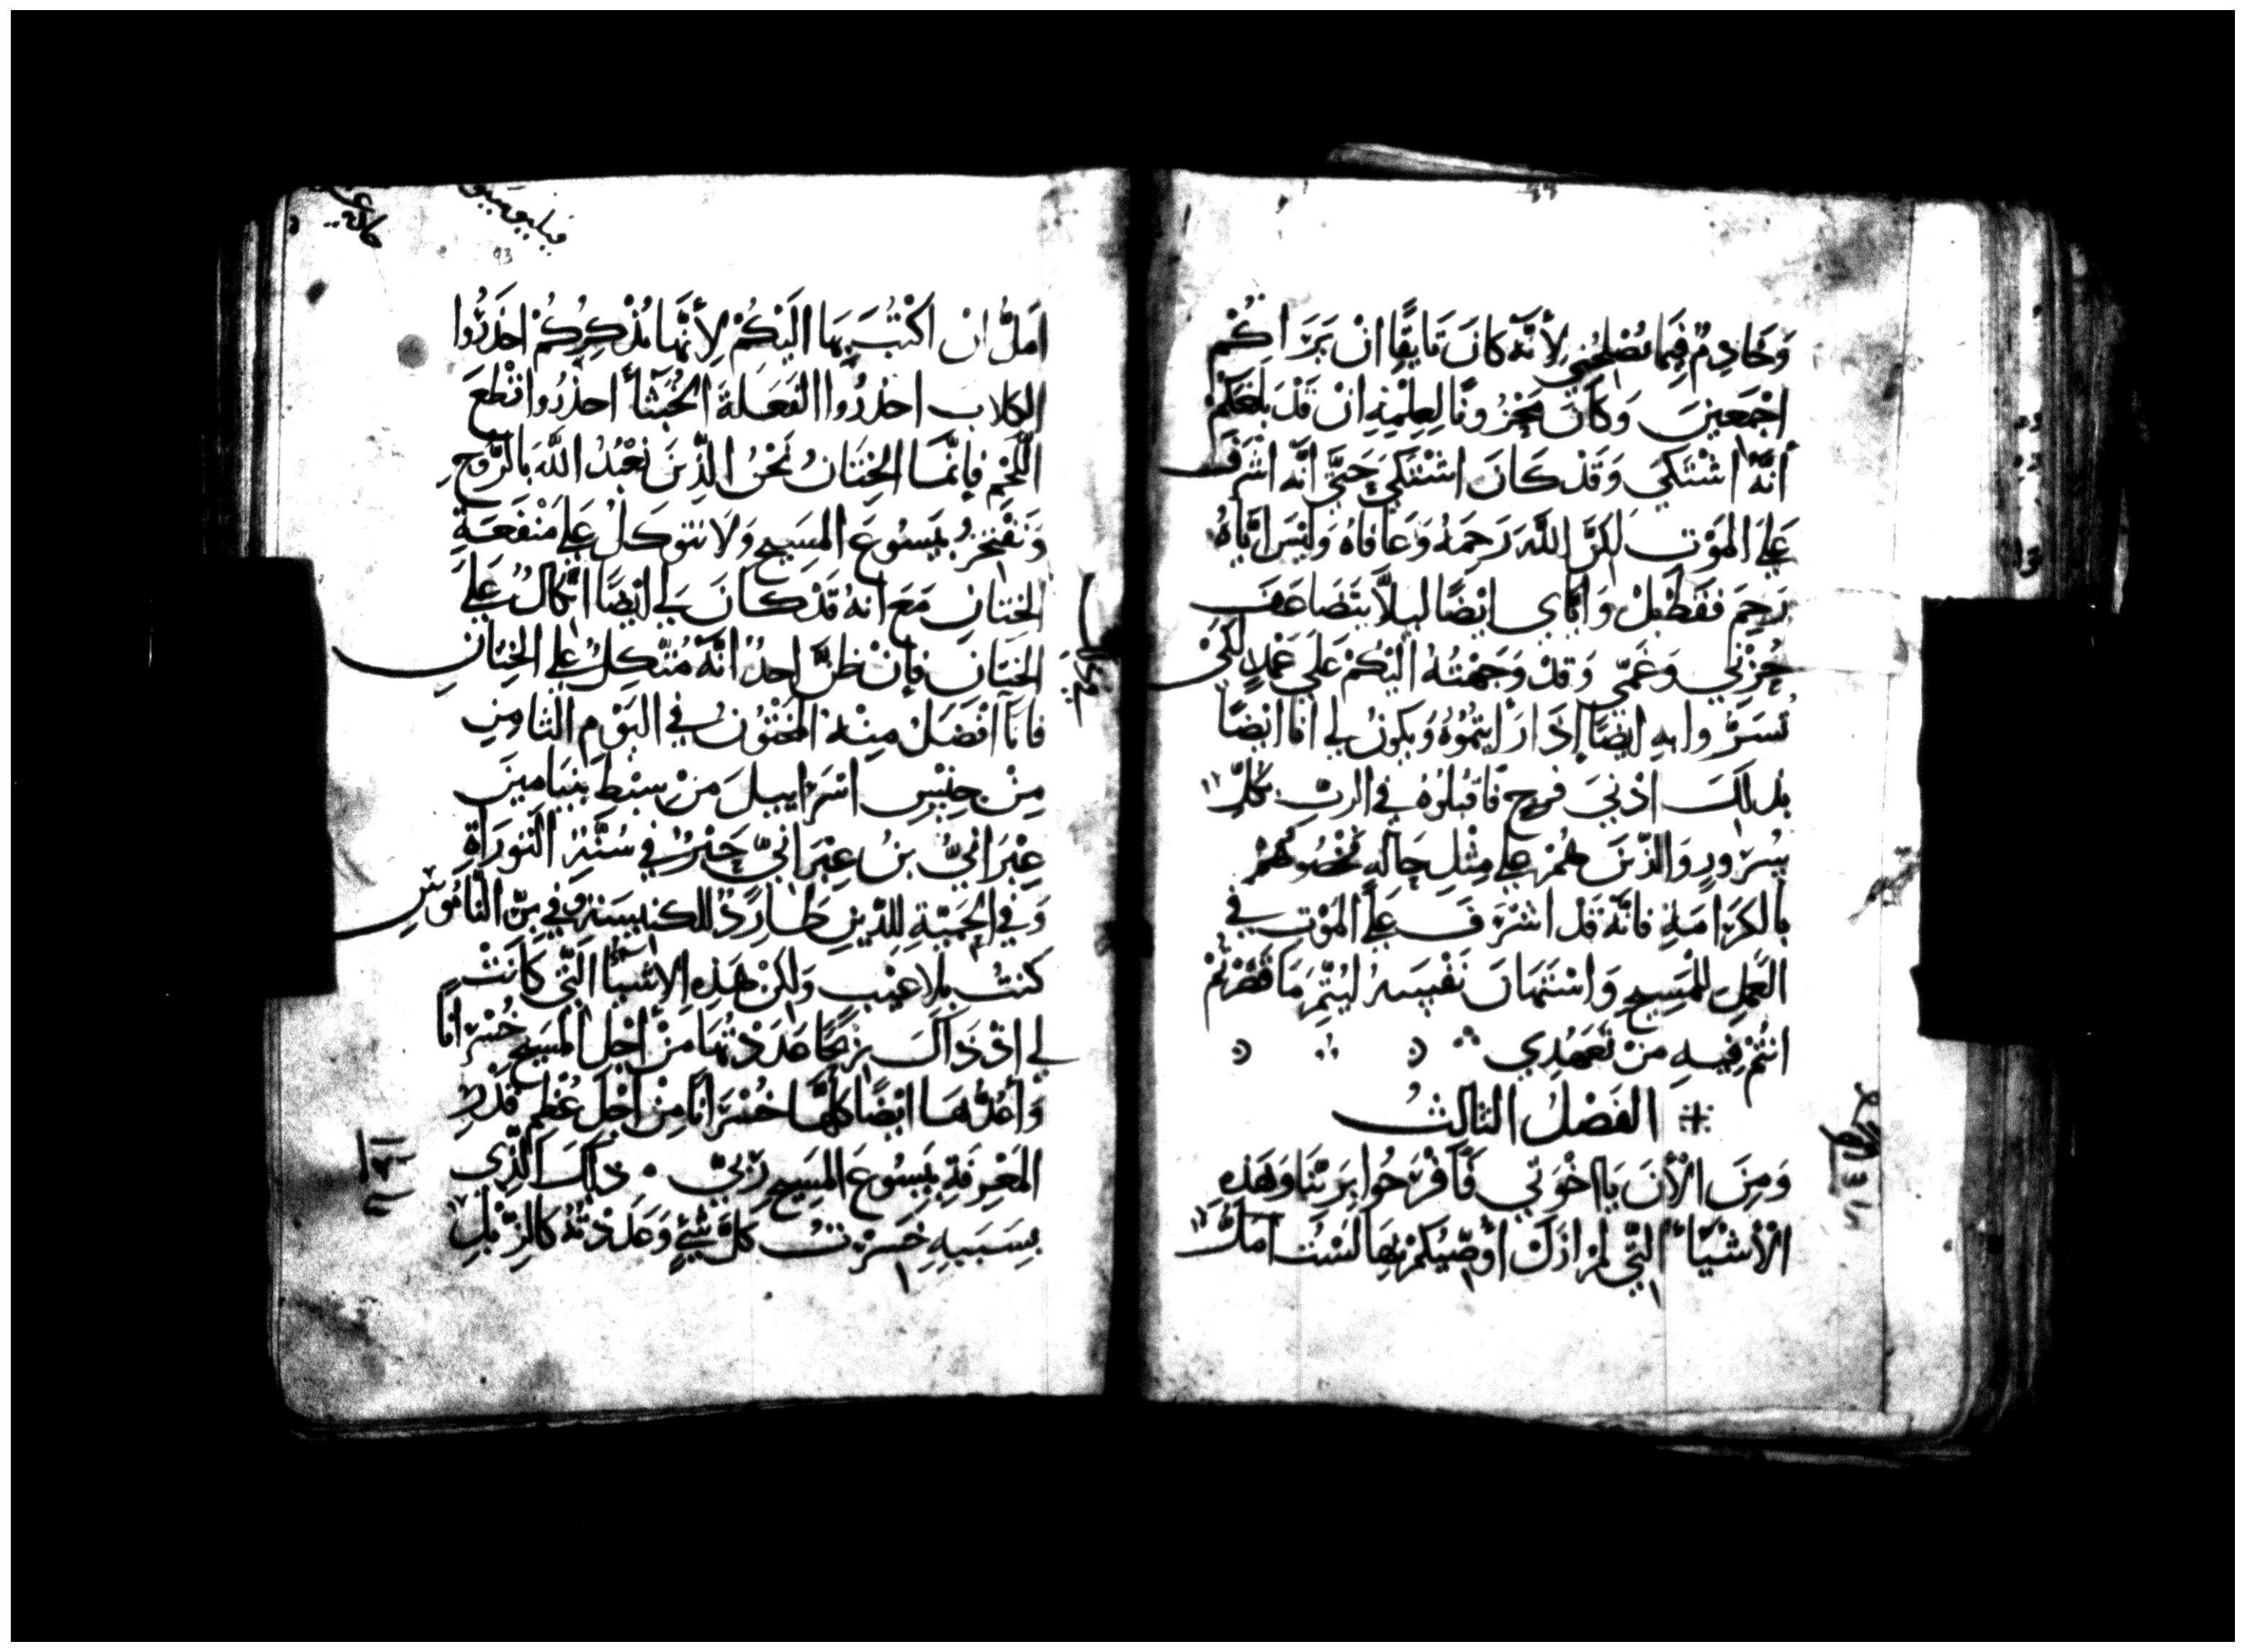 وَخَادِمٌ فِيمَا يُصْلِحُنِي لِأَنَّهُ كَانَ تَايِقًا اَنْ يَرَاكُمْ
اجْمَعِينَ وَكَانَ مَحْزُونًا لِعِلْمِهِ اَنْ قَدْ بَلَغَكُمْ
أَنَّهُ اشْتَكَي وَقَدْ كَانَ اشْتَكَي حَتَّي اَنَّهُ اشْرَف
عَلَي المَوْتِ لَكِنَّ اللَّهَ رَحِمَهُ وَعَافَاهُ وَلَيْسَ ايَّاهُ
رَحِمَ فَقَطْ بَلْ وَايَّاي ايْضًا ليلَّا يتَضَاعَف
حُزْنِي وَغَمِّي وَقَدْ وَجَهْتُهُ الَيْكُمْ عَلَي عَمْدٍ لِكَيْ
تُسَرُّوا بهِ ايْضًا إِذَا رَأَيْتُمُوهُ وَيَكُونُ لِي انَا ايْضًا
بذلكَ ادْنِيَ فرح فَاقبلُوهُ في الربّ بكُلِّ
سُرُورٍ وَالذِّينَ هُمْ عَلي مِثْلِ حَالهِ خُصُوهُمْ
بالكَرَامَةِ فَانَّهُ قَد اشْرَفَ عَلَي المَوْتِ في
العَمَلِ للْمَسِيحِ وَاسْتَهَانَ نَفْسِهُ ليُتَّمِ مَا قَصَّرْتُمْ
انتُمْ فِيهِ مِنْ تَعَهُدِي
الفَصْلُ الثالثُ
وَمِنَ الْأَنَ يَااخْوَتِي فَافْرَحُوا بِرَبِّنَا وَهَذِهِ
الْأَشْيَاء التِّي لَمْ ازَلْ أُوصِّيكُمْ بِهَا لَسْتُ امَلُّ
فيليبوسيو
93
امَلُّ اَنْ اكْتُبَ بِهَا الَيْكُمْ لِأَنَّهَا تُذْكِرِكُمْ احْذَرُوا
الكلاب احْذرُوا الفَعَلَةَ الخُبَثَأَ احذرُوا قَطْعَ
اللَّحْمِ فَإِنَّمَا الخِتَانُ نَحْنُ الذِّينَ نَعْبُدُ اللَّهَ بِالرُّوحِ
وَنَفْتَخِرُ بيَسُوعَ المَسِيحِ وَلَا نَتَوكَلُ عَلَي مَنْفَعَةِ
الخِتَانِ مَعَ اَنهُ قَدْ كَانَ لِي ايْضًا اتِّكَالٌ عَلَي
الخِتَانِ فَإِنْ ظنَّ احدٌ انَّهُ مُتَّكِلٌ عَلي الخِتَانِ
فَانَا افْضَلُ مِنْهُ المَخْتُونُ في اليَوْمِ الثَّامِنِ
مِنْ جِنْسِ اسْرَاييلَ مِنْ سِبْطِ بِنيَامِينَ
عِبْرَانِيُّ بنُ عِبْرَانيٍّ حَبْرٌ في سُنَّةِ التَورَاةِ
وَفِي الحَمِيَّةِ لِلدِّينِ طَارِدٌ للكنِيسَةِ وَفي برّ النَّامُوسِ
كنتُ بلا عَيْبٍ وَلَكِنْ هَذِهِ الاشْيَأُ التِّي كَانَتْ
لي اذْ ذَاكَ رِبْحًا عَدَدْتُهَا مِنْ أَجْلِ المَسِيحِ خُسْرَانًا
وَأَعُدُّهَا ايْضًا كلَّهَا خُسْرَانًا مِنْ اجْلِ عُظْمِ قَدْرِ
المَعْرِفَةِ بيَسُوعَ المَسِيحِ رَبِّي ۰ ذلِكَ الذِّي
بِسَبَبِهِ خَسِرْتُ كُلَّ شَيْءٍ وَعَدَدْتُهُ كَالزِّبْلِ